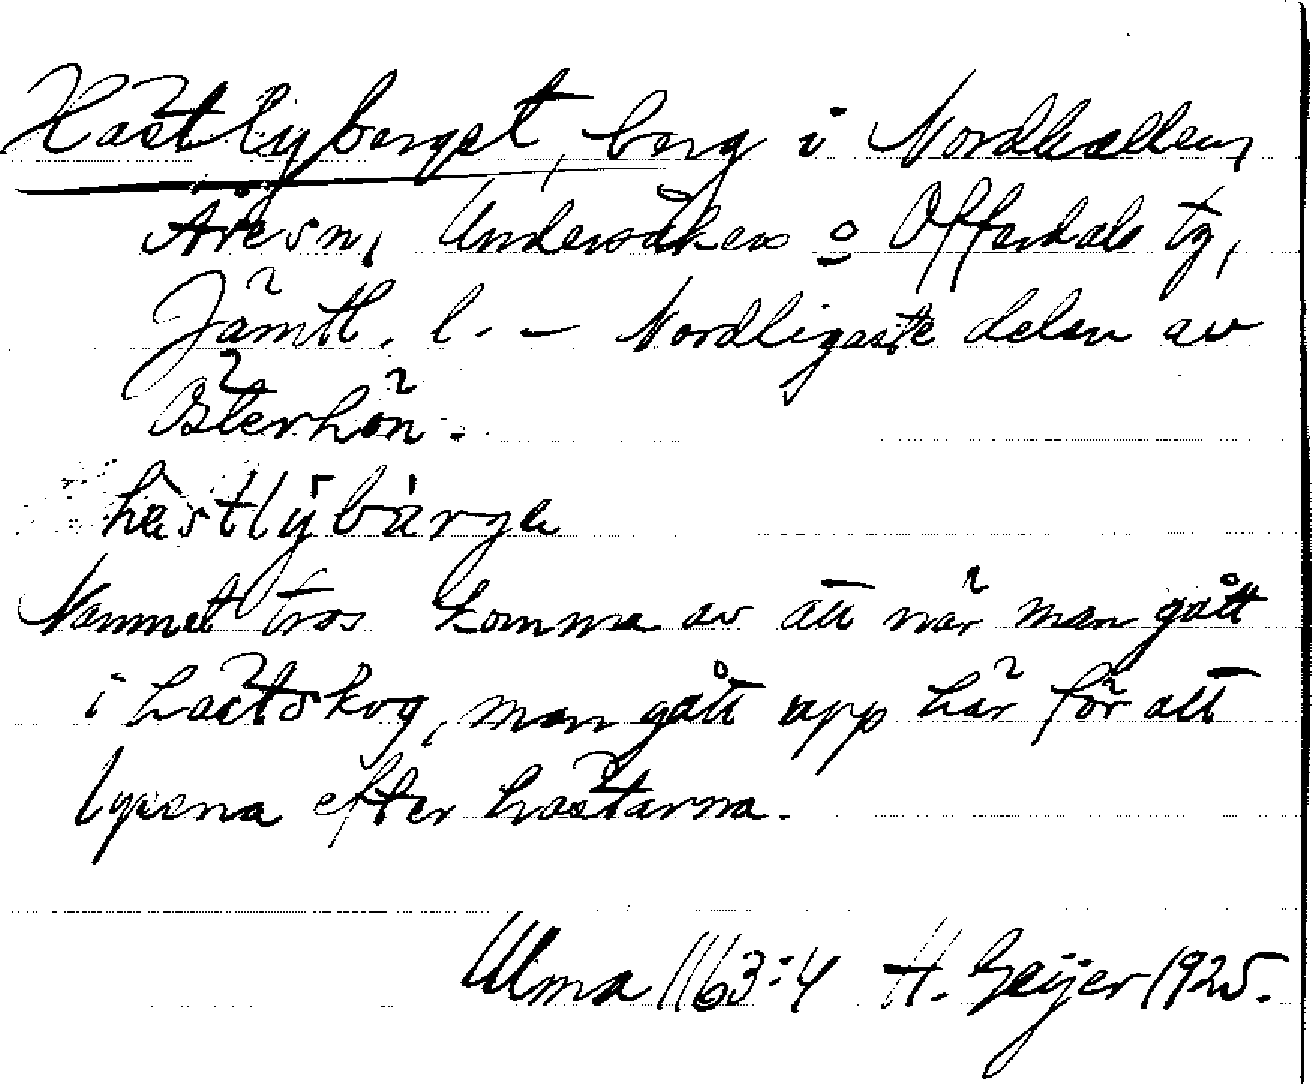 Hästlyberget, berg i Nordhallen
Åre sn, Undersåkers o Offerdals tg,
Jämtl. l. - Nordligaste delen av
Österhön.
hästlybärge
Namnet tros komma av att när man gått
i hästskog, man gått upp här för att
lyssna efter hästarna.
Ulma 1163:4 H. Geijer 1925.